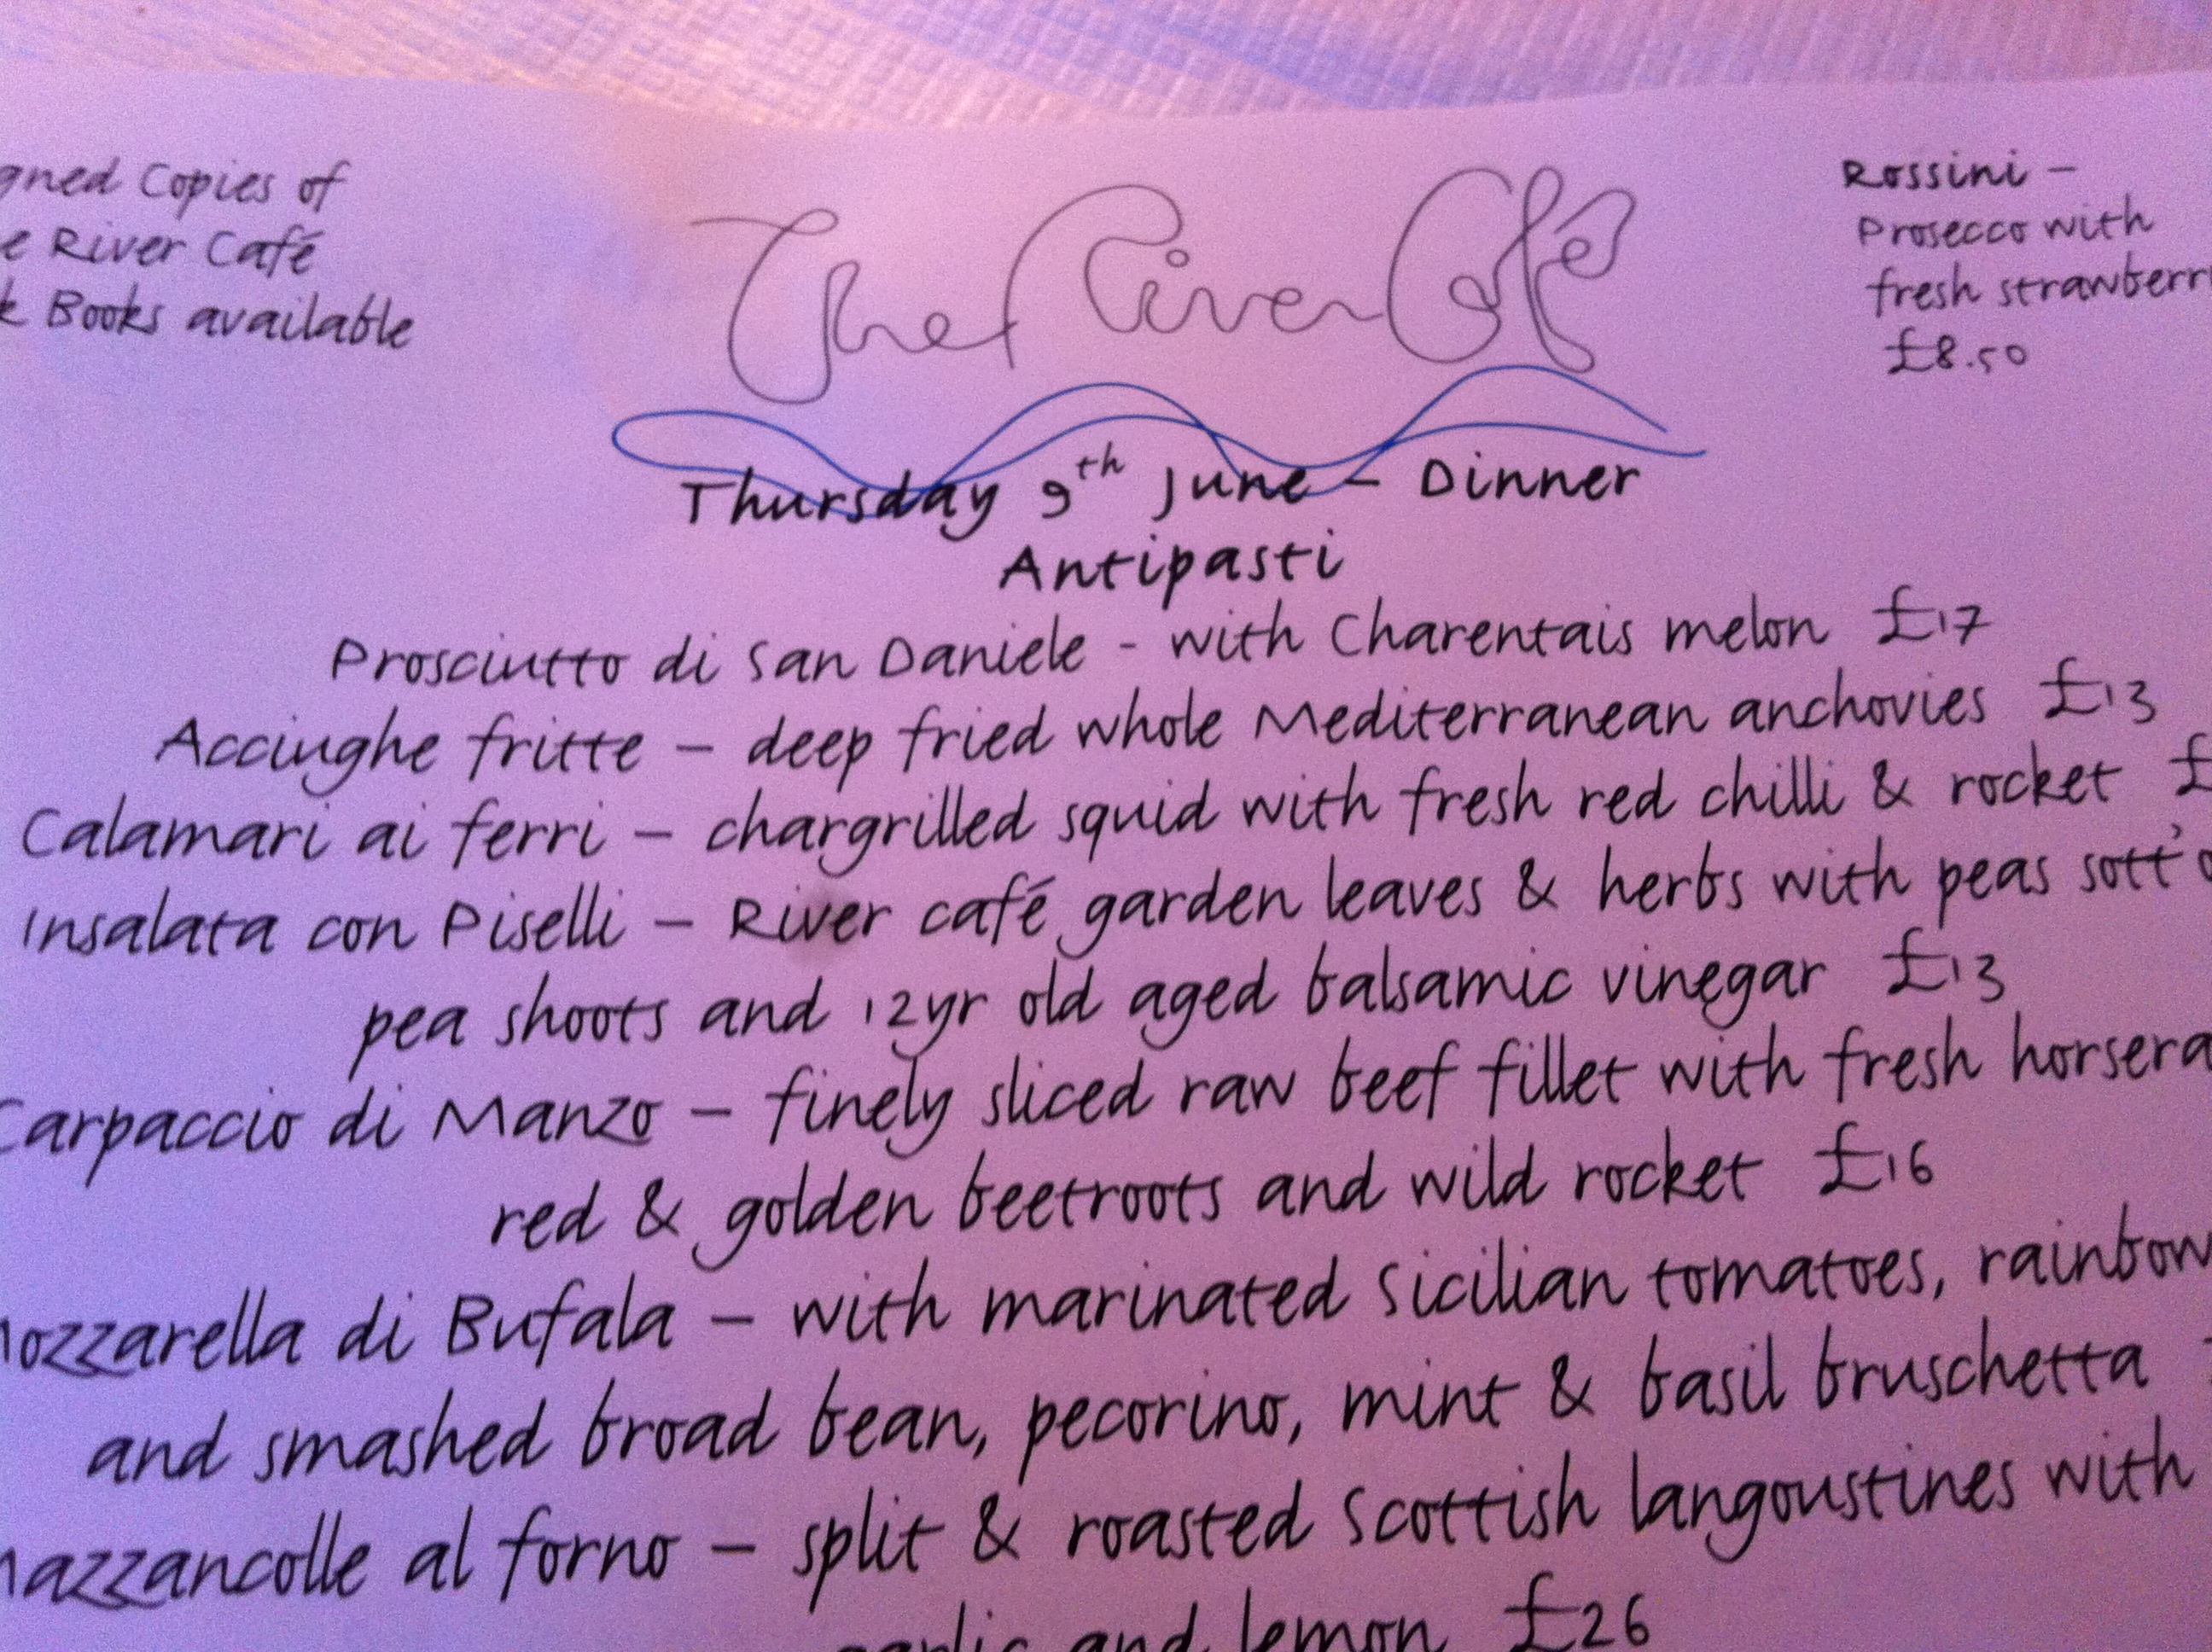 gned Copies of
e River Café
k Books available
The River Café
Rossini –
Prosecco with
fresh strawberr
£8.50
Thursday 9th June – Dinner
Antipasti
Prosciutto di San Daniele - with Charentais melon £17
Acciughe fritte – deep fried whole Mediterranean anchovies £13
Calamari ai ferri – chargrilled squid with fresh red chilli & rocket £
Insalata con Piselli – River café garden leaves & herbs with peas sott'o
pea shoots and 12yr old aged balsamic vinegar £13
Carpaccio di Manzo – finely sliced raw beef fillet with fresh horsera
red & golden beetroots and wild rocket £16
Mozzarella di Bufala – with marinated Sicilian tomatoes, rainbow
and smashed broad bean, pecorino, mint & basil bruschetta
Mazzancolle al forno – split & roasted Scottish langoustines with
garlic and lemon £26